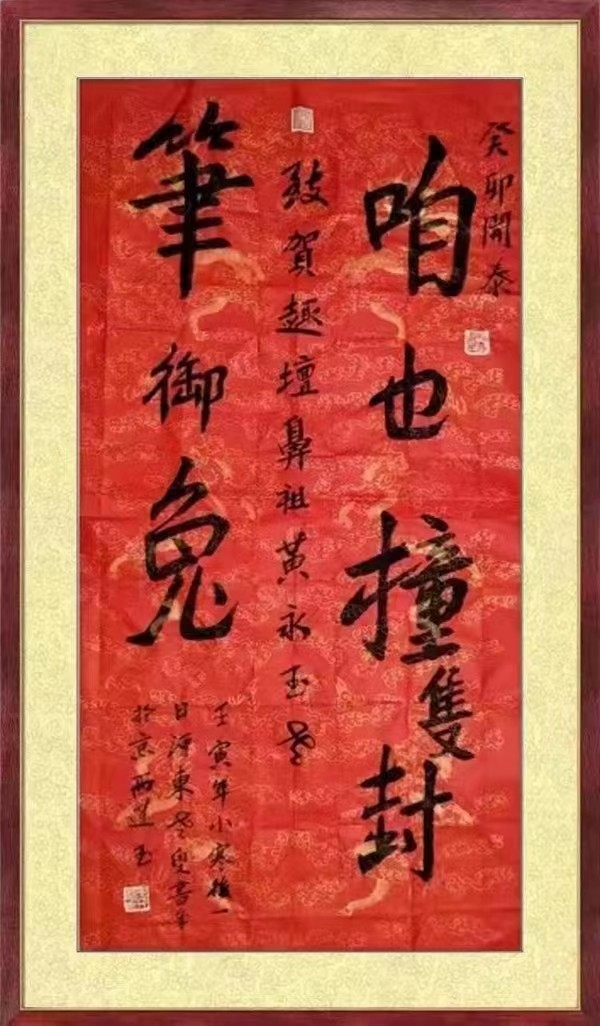 癸卯開泰
咱也撞隻封
致賀趣壇鼻祖黄永玉老
筆御兔
壬寅年小寒後一
日河東老叟書
於京西